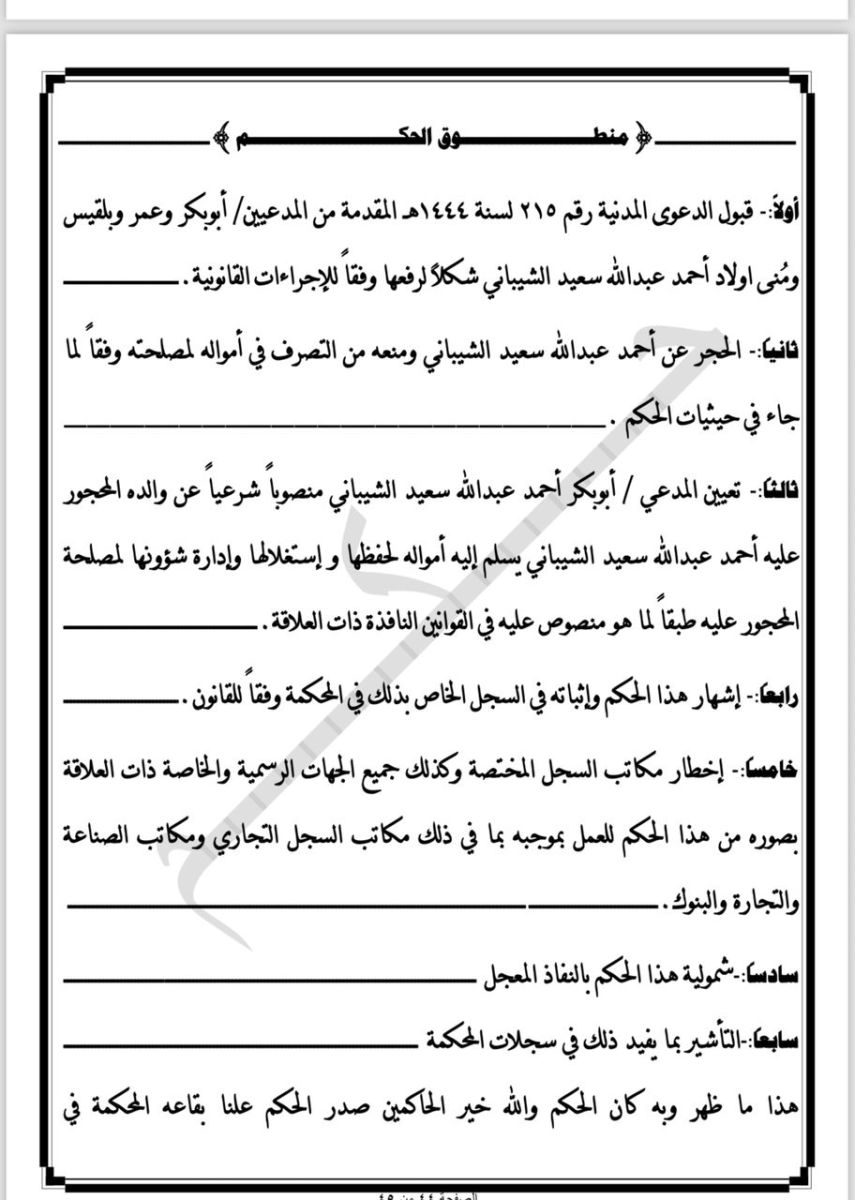 منطوق الحكم
أولاً:- قبول الدعوى المدنية رقم ٢١٥ لسنة ١٤٤٤هـ المقدمة من المدعيين/ أبوبكر وعمر وبلقيس
ومُنى اولاد أحمد عبدالله سعيد الشيباني شكلاً لرفعها وفقاً للإجراءات القانونية .
ثانياً:- الحجر عن أحمد عبدالله سعيد الشيباني ومنعه من التصرف في أمواله لمصلحته وفقاً لما
جاء في حيثيات الحكم .
ثالثاً:- تعيين المدعي / أبوبكر أحمد عبدالله سعيد الشيباني منصوباً شرعياً عن والده المحجور
عليه أحمد عبدالله سعيد الشيباني يسلم إليه أمواله لحفظها و إستغلالها وإدارة شؤونها لمصلحة
المحجور عليه طبقاً لما هو منصوص عليه في القوانين النافذة ذات العلاقة .
رابعاً:- إشهار هذا الحكم وإثباته في السجل الخاص بذلك في المحكمة وفقاً للقانون .
خامساً:- إخطار مكاتب السجل المختصة وكذلك جميع الجهات الرسمية والخاصة ذات العلاقة
بصوره من هذا الحكم للعمل بموجبه بما في ذلك مكاتب السجل التجاري ومكاتب الصناعة
والتجارة والبنوك .
سادساً:-شمولية هذا الحكم بالنفاذ المعجل
سابعاً:-التأشير بما يفيد ذلك في سجلات المحكمة
هذا ما ظهر وبه كان الحكم والله خير الحاكمين صدر الحكم علنا بقاعه المحكمة في
الصفحة ٤٤ من ٤٥